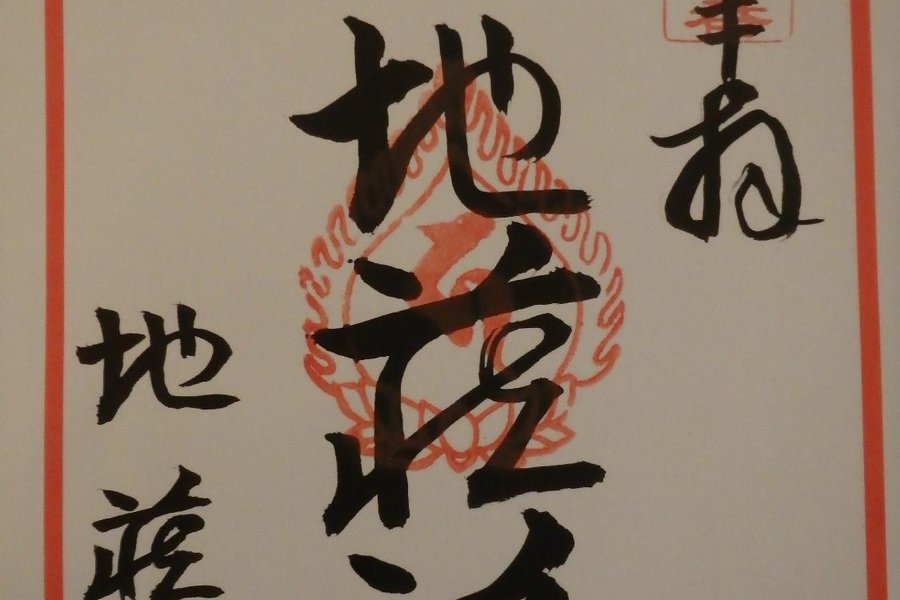 奉拝
地蔵
地蔵